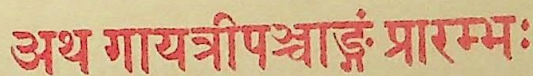 अथ गायत्रीपञ्चाङ्गं प्रारम्भः